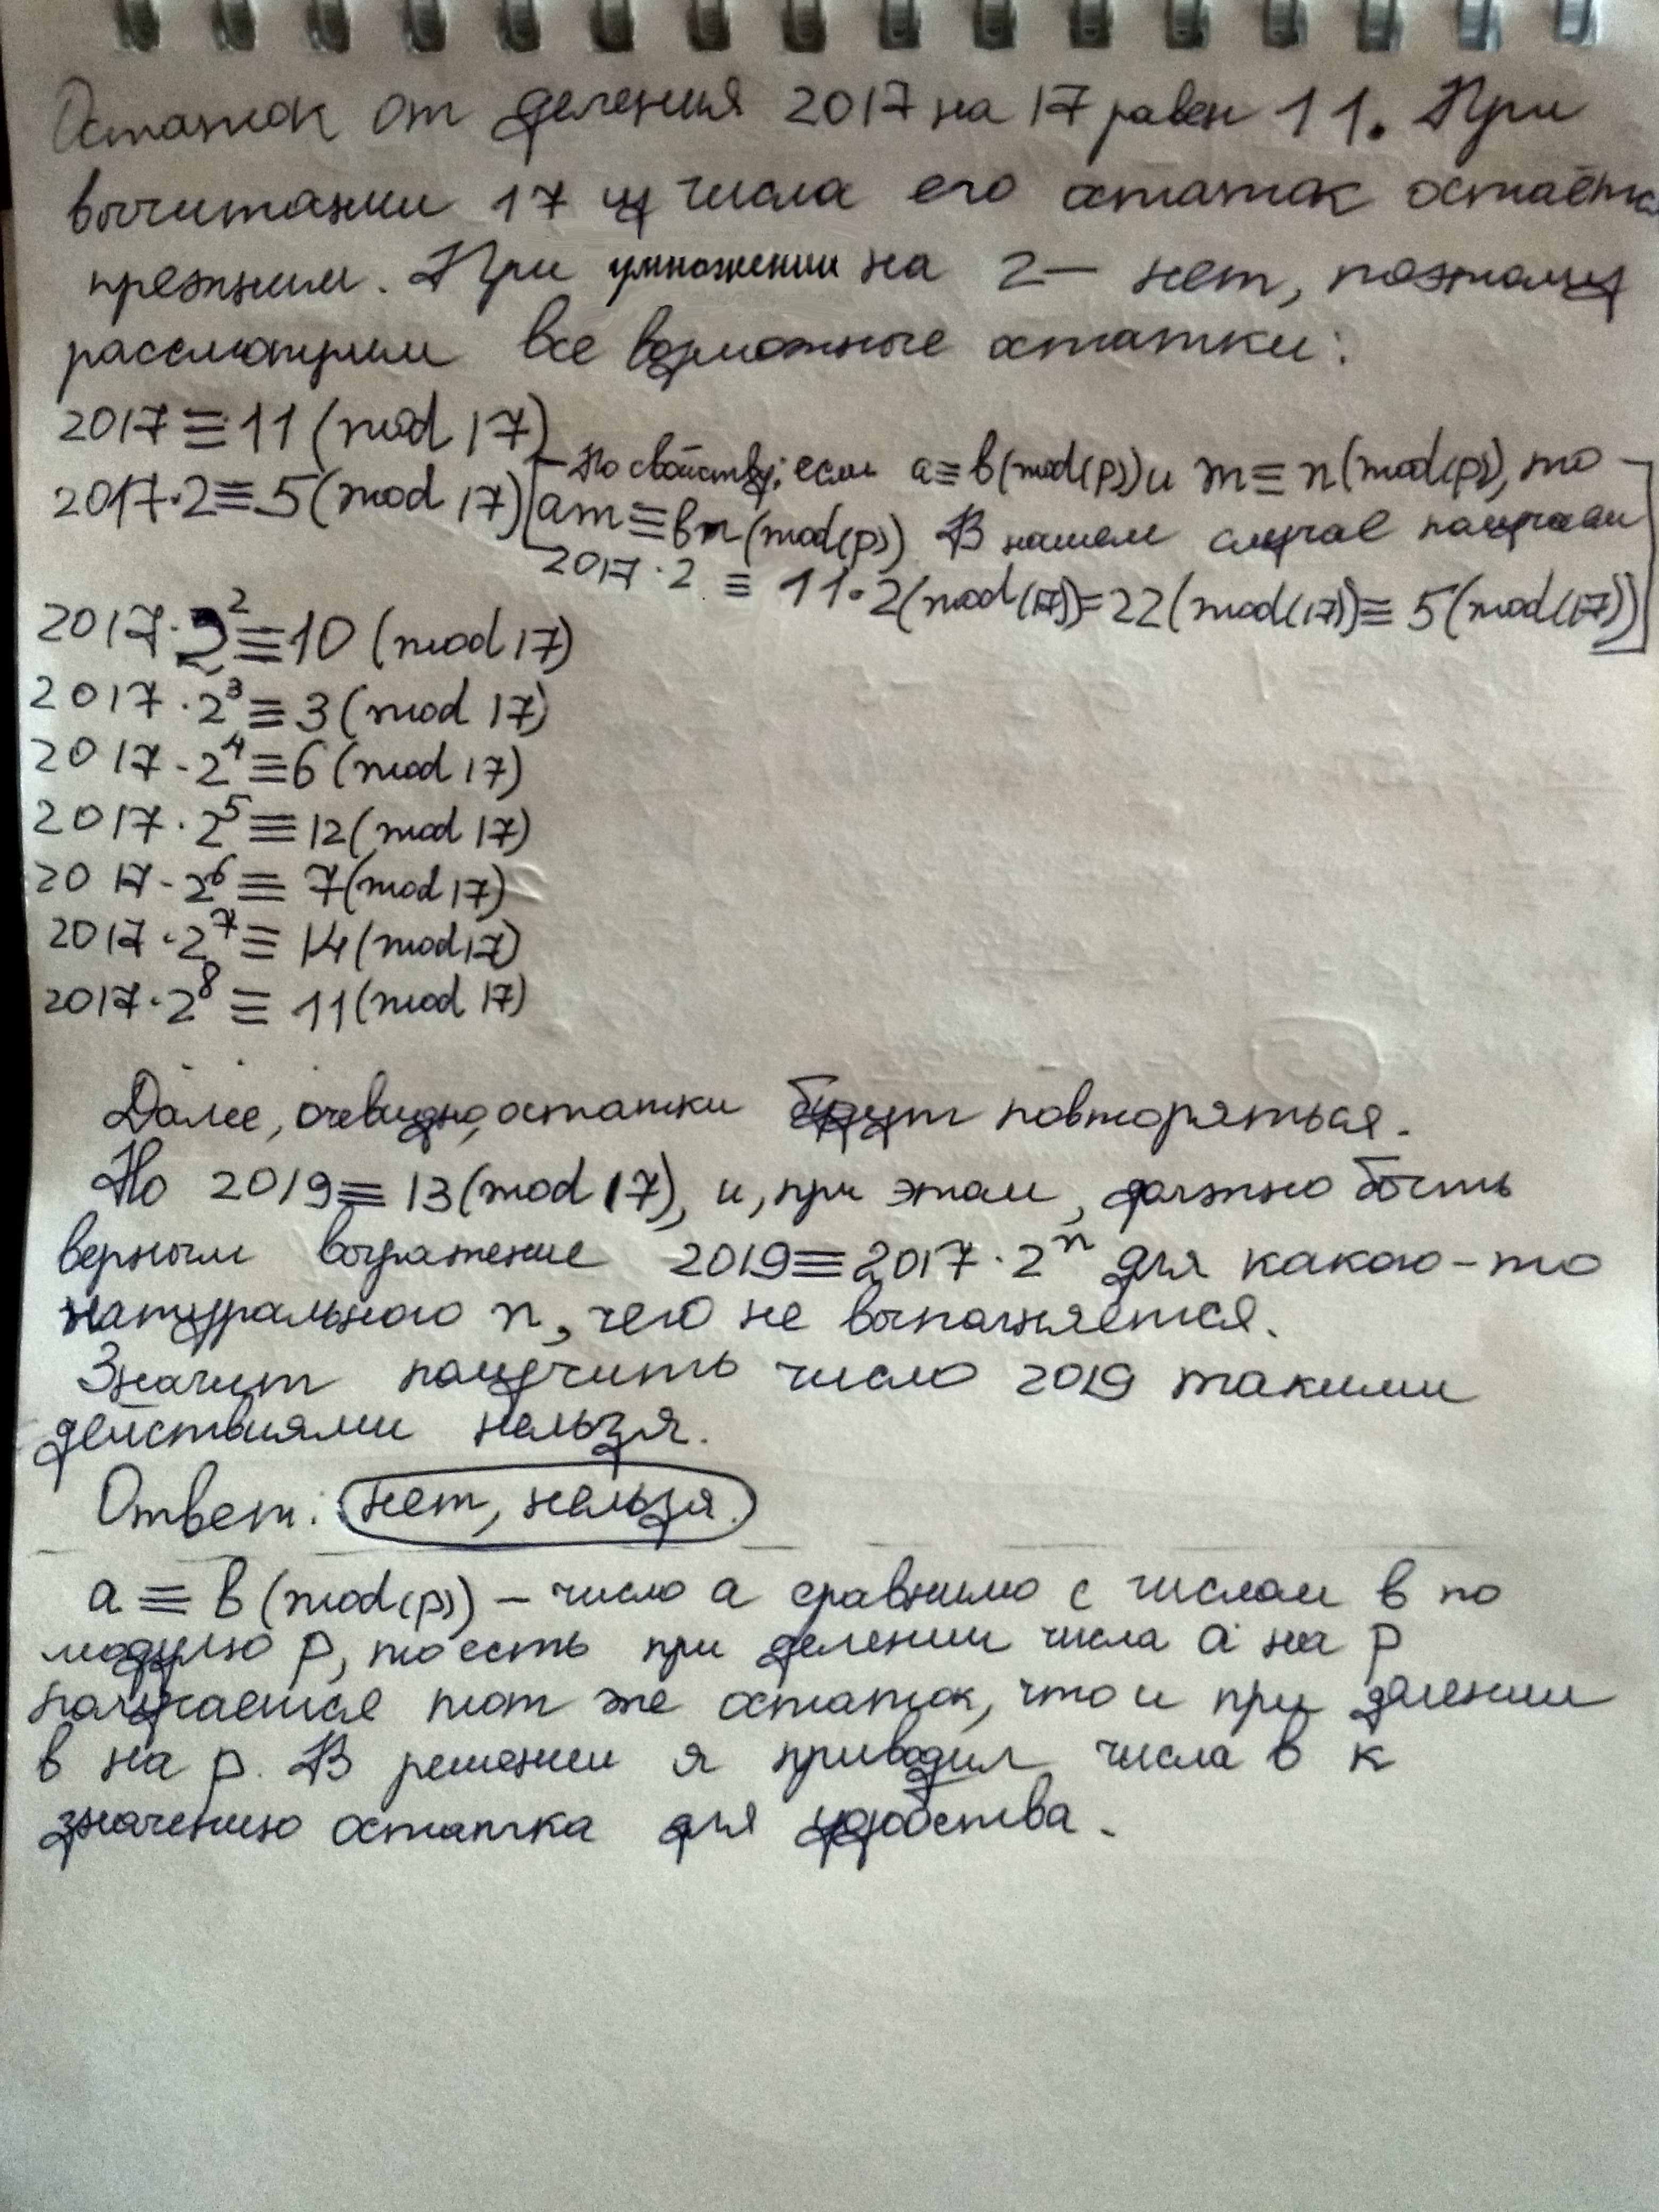 Остаток от деления 2017 на 17 равен 11. При
вычитании 17 из числа его остаток остаётся
прежним. При умножении на 2 — нет, поэтому
рассмотрим все возможные остатки:
2017 ≡ 11 (mod 17)
2017·2 ≡ 5 (mod 17) [По свойству: если a ≡ b (mod(p)) и m ≡ n (mod(p)), то
am ≡ bn (mod(p)). В нашем случае получаем
2017·2 ≡ 11·2 (mod(17)) = 22 (mod(17)) ≡ 5 (mod(17))]
2017·2² ≡ 10 (mod 17)
2017·2³ ≡ 3 (mod 17)
2017·2⁴ ≡ 6 (mod 17)
2017·2⁵ ≡ 12 (mod 17)
2017·2⁶ ≡ 7 (mod 17)
2017·2⁷ ≡ 14 (mod 17)
2017·2⁸ ≡ 11 (mod 17)
Далее, очевидно, остатки будут повторяться.
Но 2019 ≡ 13 (mod 17), и, при этом, должно быть
верным выражение 2019 ≡ 2017·2ⁿ для какого-то
натурального n, чего не выполняется.
Значит получить число 2019 такими
действиями нельзя.
Ответ: нет, нельзя.
a ≡ b (mod(p)) – число a сравнимо с числом b по
модулю p, то есть при делении числа a на p
получается тот же остаток, что и при делении
b на p. В решении я приводил числа b к
значению остатка для удобства.